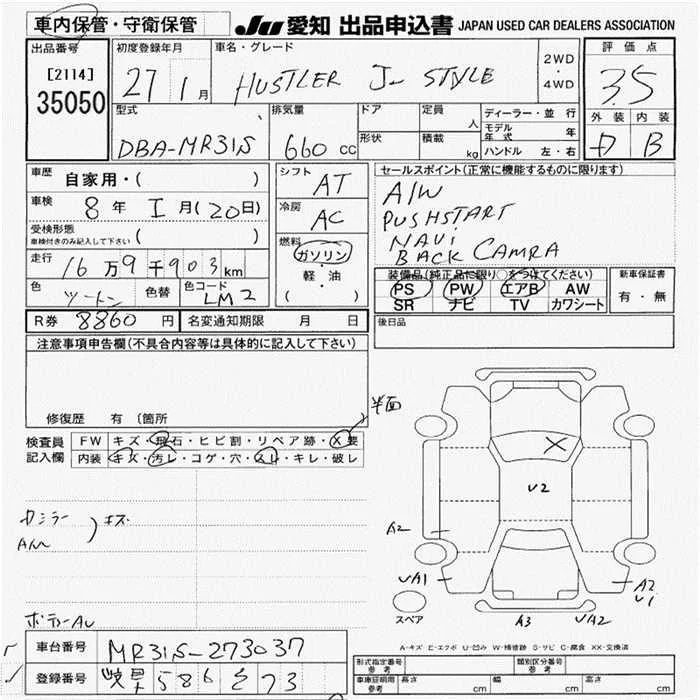 車内保管・守衛保管 JU 愛知 出品申込書 JAPAN USED CAR DEALERS ASSOCIATION
出品番号 初度登録年月 車名・グレード 2WD・4WD 評価点
[2114]
35050 27 1月 HUSTLER J- STYLE 3.5
型式 排気量 ドア 定員 人 ディーラー・並行 外装 内装
形状 積載 kg モデル年式 年
DBA-MR31S 660 cc ハンドル 左・右 D B
車歴 自家用・( ) シフト AT セールスポイント(正常に機能するものに限ります)
車検 8年 1月(20日) 冷房 AC A/W
PUSHSTART
受検形態 車検付きのみ記入して下さい ( ) 燃料 NAVi
BACK CAMRA
走行 16万9千903km ガソリン
軽・油
( )
装備品(純正品に限り○をつけてください) 新車保証書
色 ツートン 色替 色コード LM2 PS PW エアB AW 有・無
SR ナビ TV カワシート
R券 8860円 名変通知期限 月 日 後日品
注意事項申告欄(不具合内容等は具体的に記入して下さい)
修復歴 有 〔箇所 〕
半面
検査員記入欄 FW キズ・飛石・ヒビ割・リペア跡・X要
内装 キズ・汚レ・コゲ・穴・スレ・キレ・破レ
X
U2
カミラー キズ
A2
UA1
A2
U1
スペア
A3 UA2
A-キズ E-エクボ U-凹み W-補修跡 S-サビ C-腐食 XX-交換済
車台番号 MR31S-273037
登録番号 岐阜 586 73
形式指定番号 参考 類別区分番号 参考
車庫証明用 参考 長さ cm 幅 cm 高さ cm